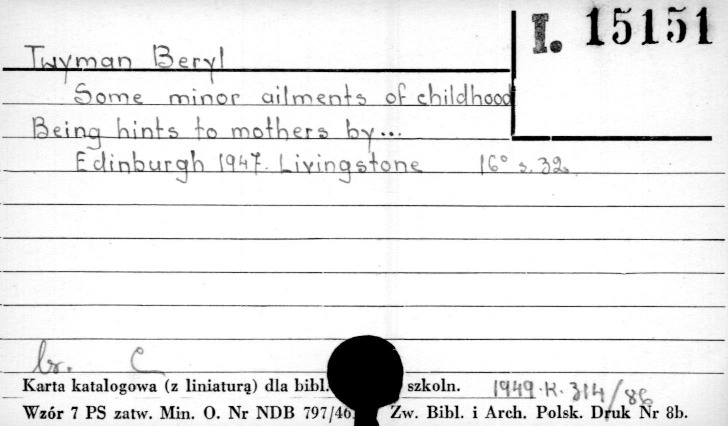 I. 15151
Twyman Beryl
Some minor ailments of childhood
Being hints to mothers by...
Edinburgh 1947. Livingstone 16° s. 32.
br. C
Karta katalogowa (z liniaturą) dla bibl. szkoln. 1949.K.314/86
Wzór 7 PS zatw. Min. O. Nr NDB 797/46. Zw. Bibl. i Arch. Polsk. Druk Nr 8b.